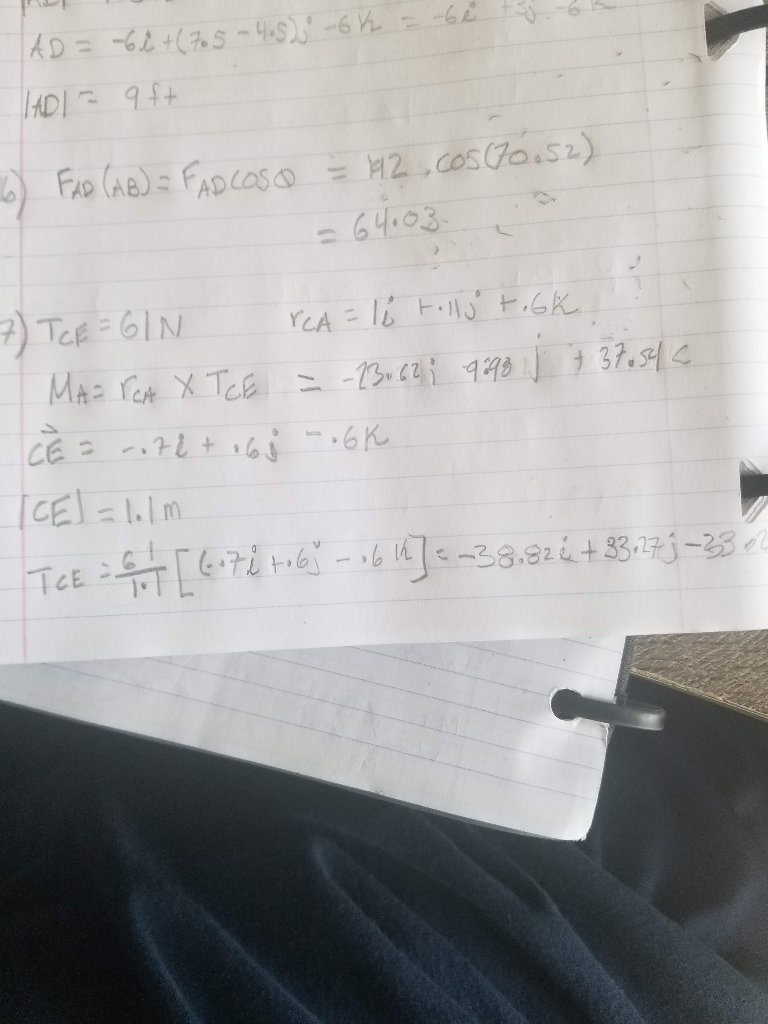 AD = -6i + (7.5 - 4.5)j - 6k = -6i + 3j - 6k
|AD| = 9 ft
6) FAD (AB) = FAD COSθ = .cos(70.52)
= 64.03
7) TCE = 61N rCA = 1i + .11j + .6k
MA = rCA X TCE = -23.62i 9.98 j + 37.54
CE = -.7i + .6j - .6k
|CE| = 1.1m
TCE = 61/1.1 [(-.7i + .6j - .6k] = -38.82i + 33.27j - 33.2